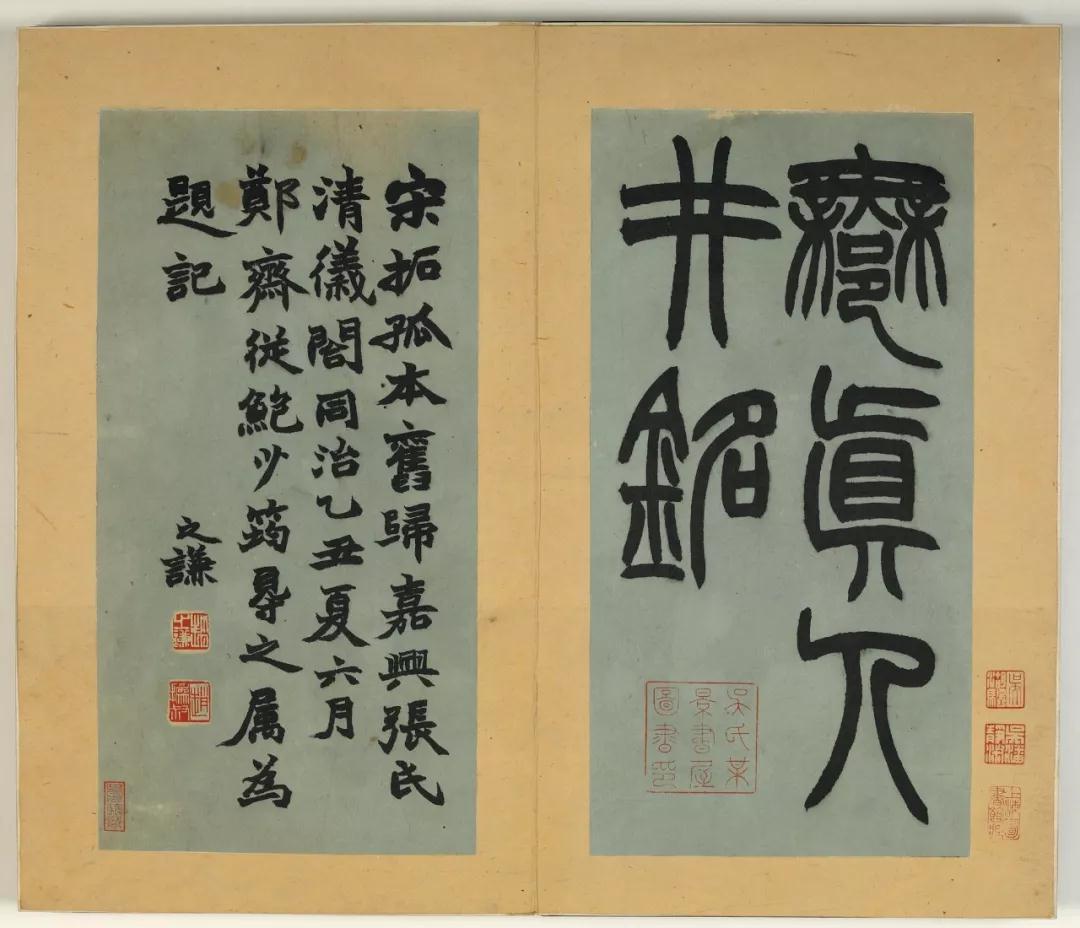 鄦眞人
井銘
吳氏某
景書屋
圖書印
宋拓孤本舊歸嘉興張氏
清儀閣同治乙丑夏六月
鄭齋從鮑少筠㝵之属為
題記
之謙